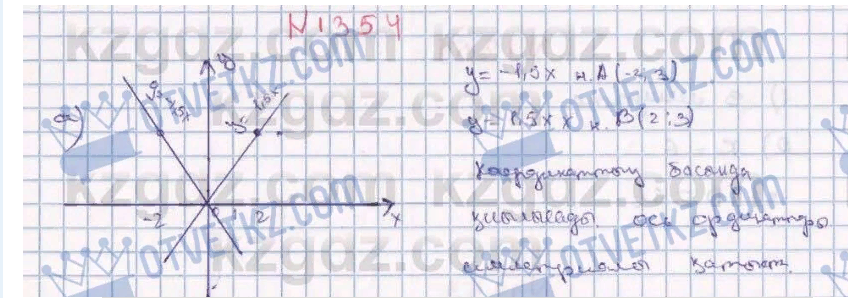 N 1354
y
a)
y=-1,5x
y=1,5x
-2 0 1 2 x
y = -1,5x н. A(-2;3)
y = 1,5x н. B(2;3)
Координаттың басында
қиылысады. ось ординаттары
симметриялы қатысты.
kzgdz.com
OTVETKZ.COM